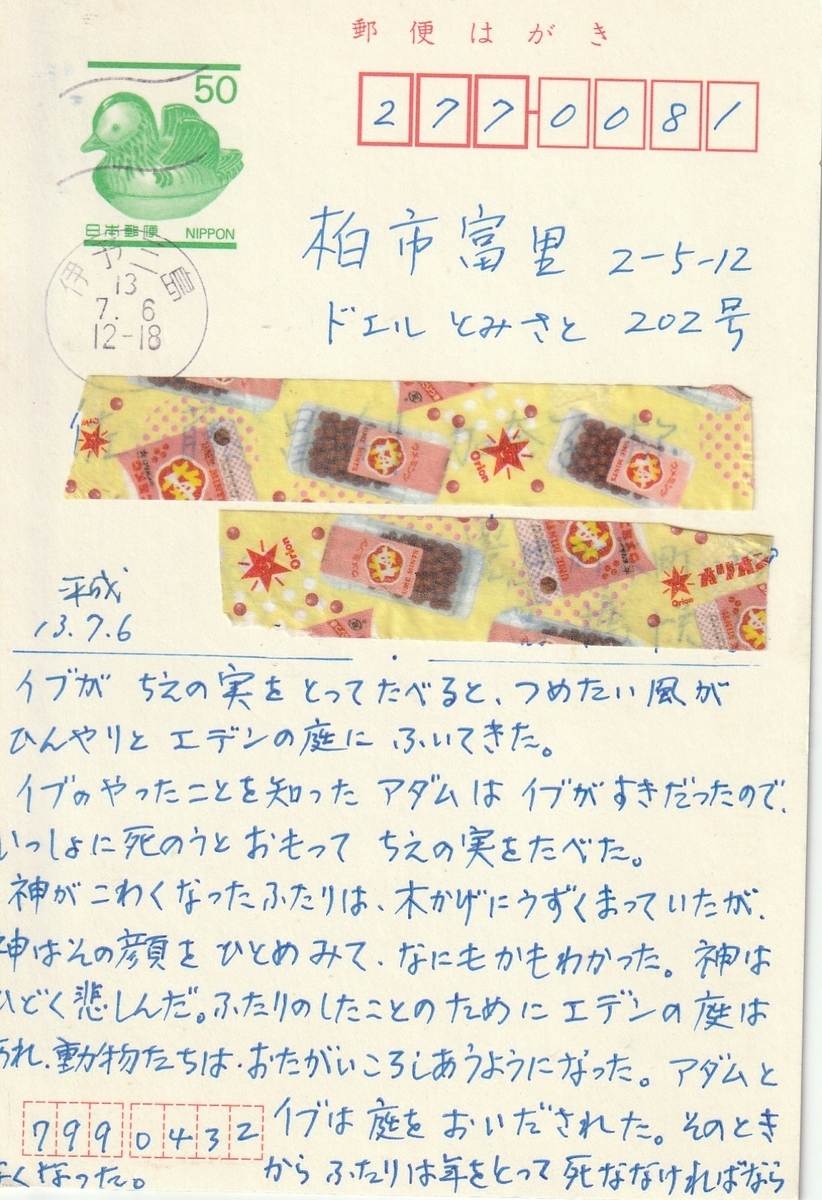 郵便はがき
50
日本郵便 NIPPON
277-0081
伊予三島
13
7.6
12-18
柏市富里 2-5-12
ドエル とみさと 202号
Orion
Orion
Orion
Orion
平成
13.7.6
イブが ちえの実を とってたべると、つめたい風が
ひんやりと エデンの庭に ふいてきた。
イブのやったことを知った アダムは イブがすきだったので、
いっしょに死のうと おもって ちえの実をたべた。
神が こわくなったふたりは、木かげにうずくまっていたが、
神はその顔を ひとめみて、なにもかもわかった。神は
ひどく悲しんだ。ふたりのしたことのために エデンの庭は
あれ、動物たちは、おたがいころしあうようになった。アダムと
イブは 庭を おいだされた。そのとき
から ふたりは年をとって 死ななければなら
なくなった。
7990432